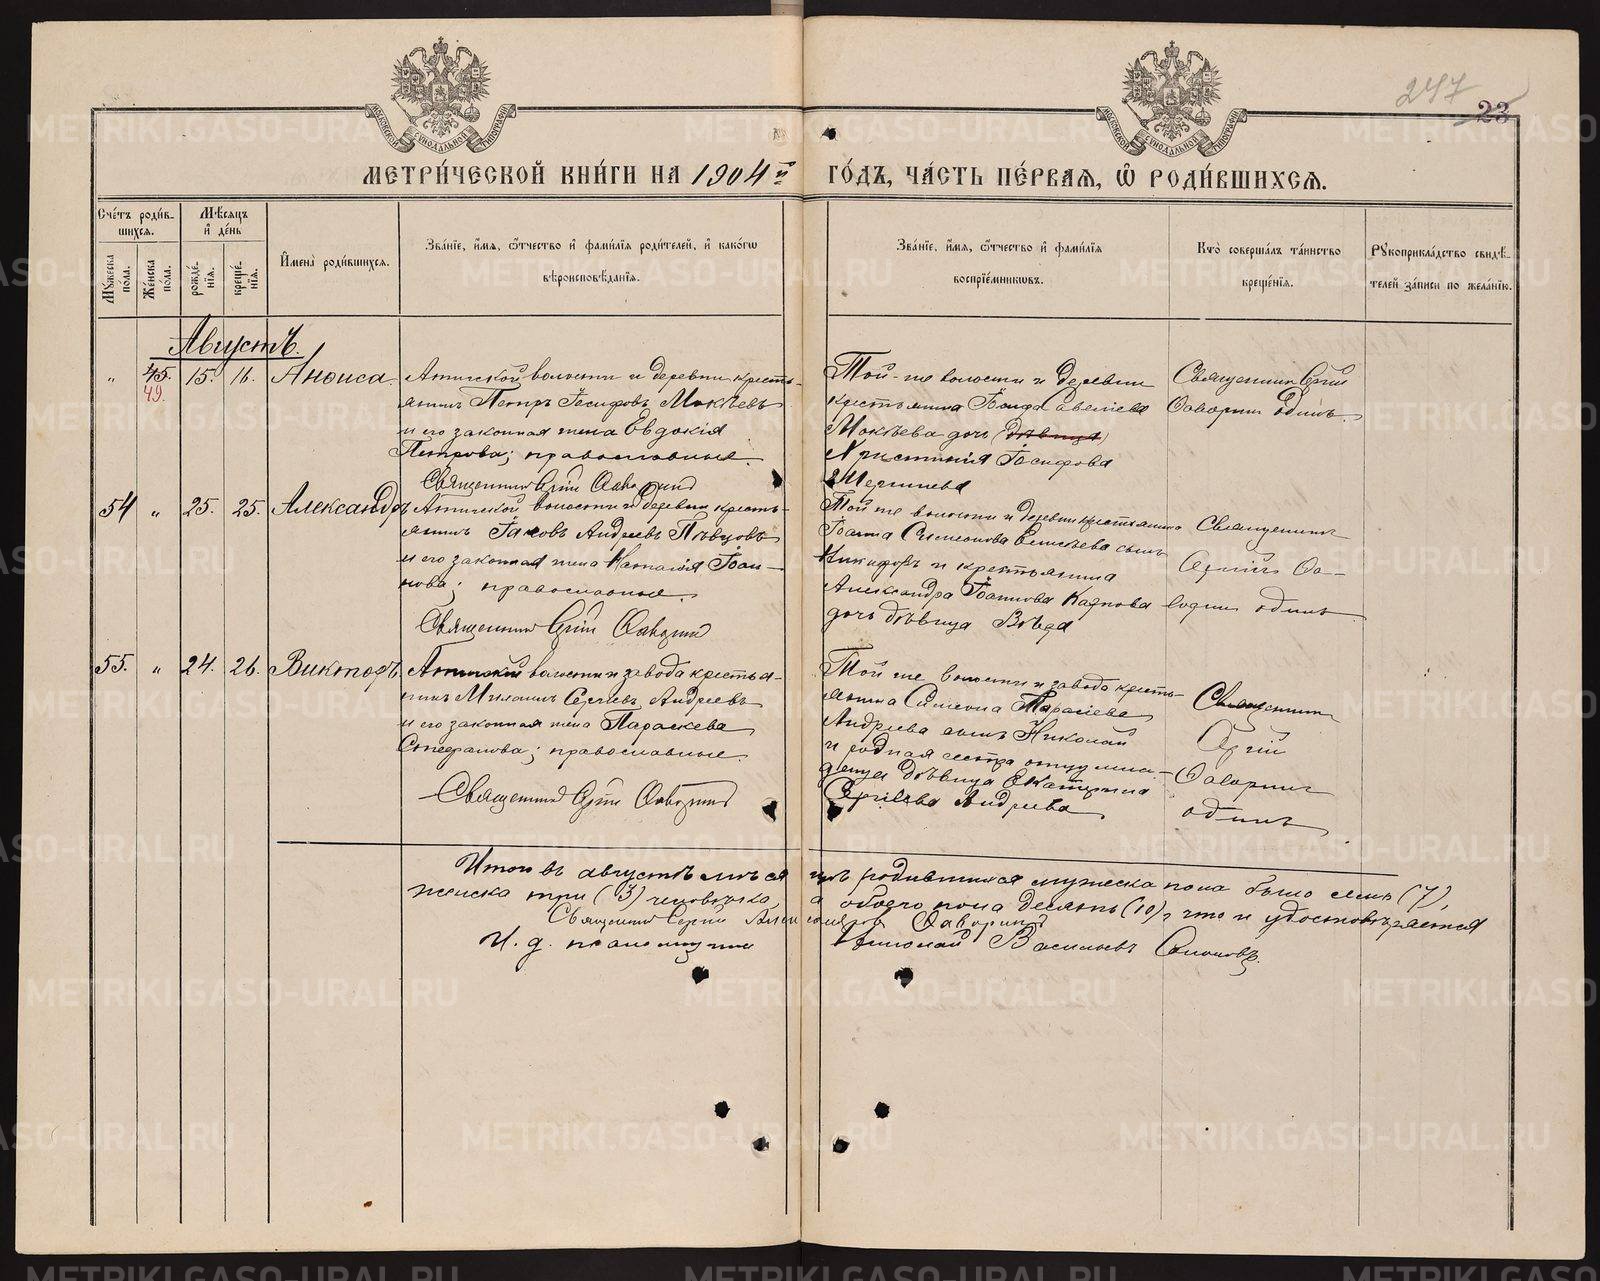 247 23
МОСКОВСКОЙ СУНОДАЛЬНОЙ ТИПОГРАФІИ
МОСКОВСКОЙ СУНОДАЛЬНОЙ ТИПОГРАФІИ
МЕТРИ́ЧЕСКОЙ КНИ́ГИ НА 1904й ГО́ДЪ, ЧА́СТЬ ПЕ́РВАЯ, Ѡ҆ РОДИ́ВШИХСЯ.
Сче́тъ роди́вшихся.
Мꙋ́жеска по́ла.
Же́нска по́ла.
Мѣ́сяцъ и҆ де́нь
рожде́нїя.
креще́нїя.
И҆мена̀ роди́вшихся.
Зва́нїе, и҆́мя, ѻ҆́тчество и҆ фами́лїя роди́телей, и҆ како́гѡ
вѣроисповѣ́данїя.
Зва́нїе, и҆́мя, ѻ҆́тчество и҆ фами́лїя
воспрїе́мникѡвъ.
Кто̀ соверша́лъ та́инство
креще́нїя.
Рꙋкоприкла́дство свидѣ́телей за́писи по жела́нїю.
Августъ.
" 45. 49. 15. 16. Анѳиса.
Ачитской волости и деревни кресть-
янинъ Петръ Іосифовъ Мокѣевъ
и его законная жена Евдокія
Петрова; православные.
Священникъ Сергій
Той-же волости и деревни
крестьянина Савелiева
Мокѣева дочь (дѣвица)
Христинія Іосифова
Священник Сергій
одинъ.
54 " 25. 25. Александръ
Ачитской волости и деревни кресть-
янинъ Іаковъ Андреевъ Пѣвцовъ
и его законная жена Наталія Іоан-
нова; православные.
Священник Сергій
Той же волости и деревни крестьянина
Іоанна Симеонова Елисѣева сынъ
Никифоръ и крестьянина
Александра Іоаннова Карпова
дочь дѣвица
Священникъ
Сергій
одинъ
55. " 24. 26. Викторъ
волости и завода крестья-
нинъ Михаилъ Сергіевъ Андреевъ
и его законная жена Параскева
Стефанова; православные.
Священник Сергій
Той же волости и завода кресть-
янина Симеона Тарасiева
Андреева сынъ Николай
и родная сестра отцу мла-
денца дѣвица Екатерина
Сергіева Андреева
Священник
Сергій
одинъ
Итого въ августѣ мѣсяцѣ родившихся мужеска пола было семь (7),
женска три (3) человѣка, а обоего пола десять (10), что и удостовѣряется
Священникъ Сергій Александровъ
И. д. псаломщика Николай Васильевъ
METRIKI.GASO-URAL.RU